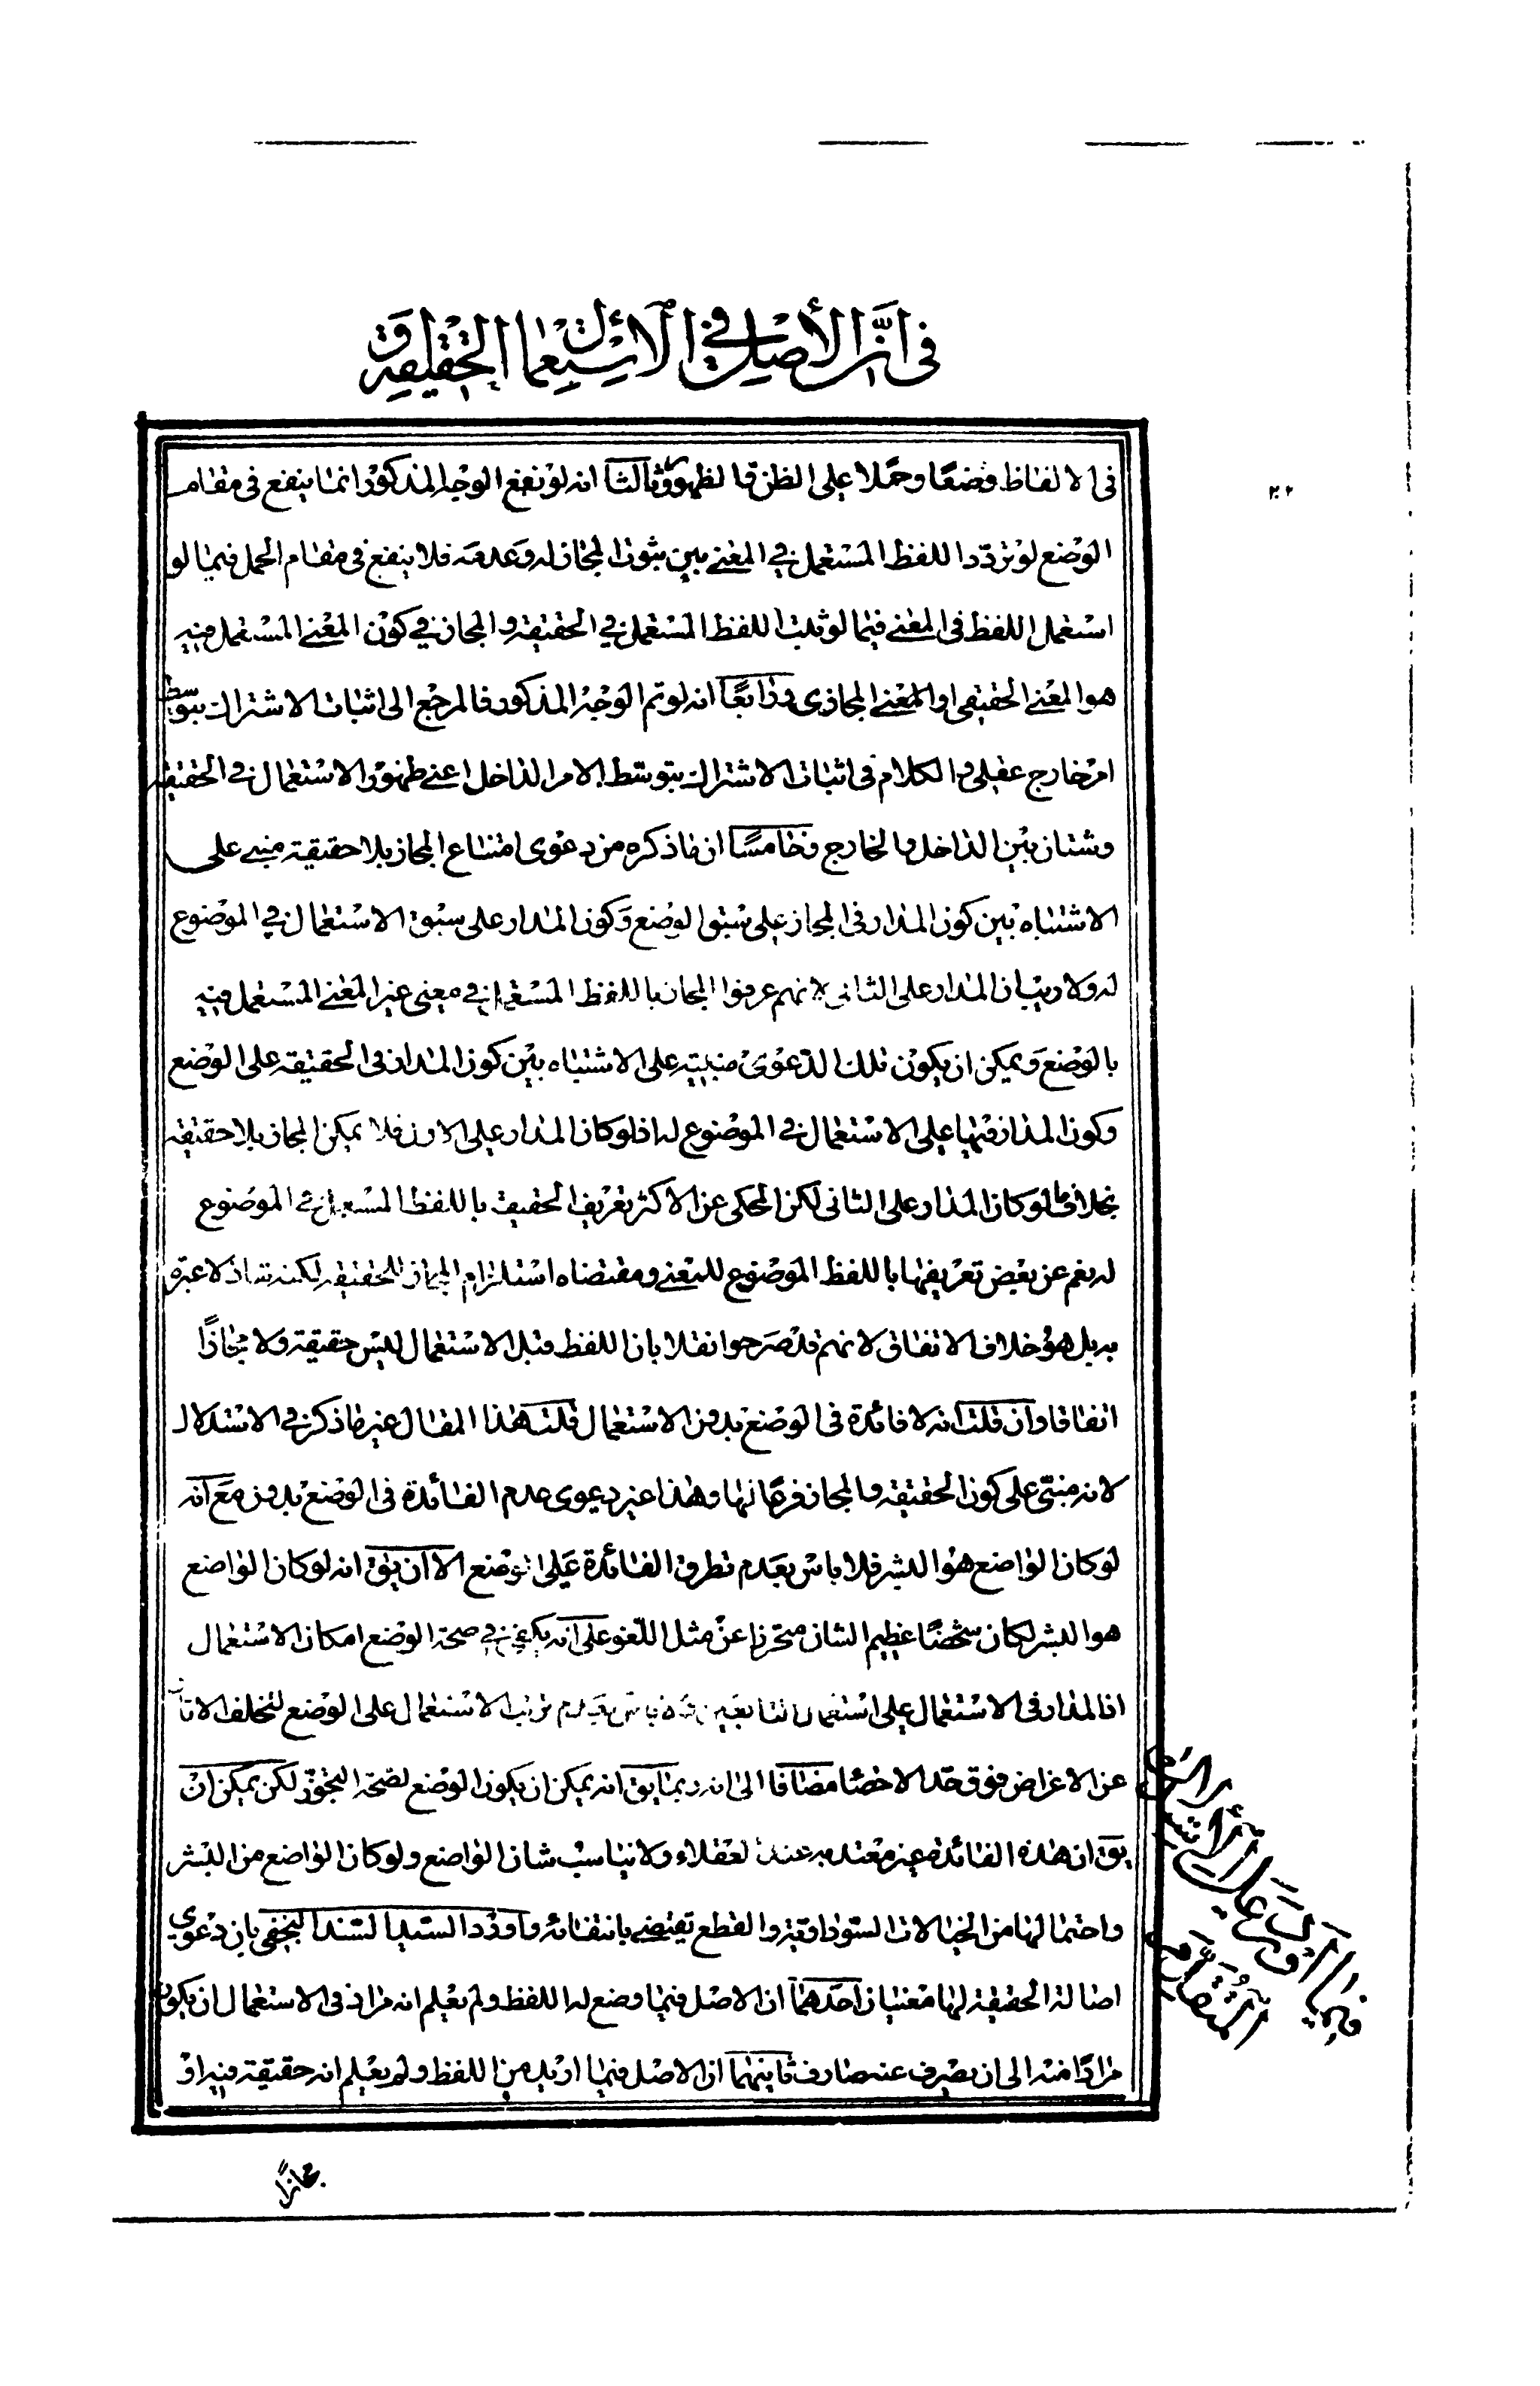 فى انّ الأصل فى الاستعمال الحقيقة
فى الالفاظ وضعًا وحملا على الظن والظهور وثالثا انه لو نفع الوجه المذكور انما ينفع فى مقام
الوضع لو تردّد اللفظ المستعمل فى المعنى بين ثبوت المجاز له وعدمه فلا ينفع فى مقام الحمل فيما لو
استعمل اللفظ فى المعنى فيما لو ثبت اللفظ المستعمل فى الحقيقة والمجاز فى كون المعنى المستعمل فيه
هو المعنى الحقيقى او المعنى المجازى ورابعًا انه لو تم الوجه المذكور فالمرجع الى اثبات الاشتراك بتوسط
امر خارج عقلى والكلام فى اثبات الاشتراك بتوسّط الامر الداخل اعنى ظهور الاستعمال فى الحقيقة
وشتان بين الداخل والخارج وخامسًا ان ما ذكره من دعوى امتناع المجاز بلا حقيقة مبنى على
الاشتباه بين كون المدار فى المجاز على سبق الوضع وكون المدار على سبق الاستعمال فى الموضوع
له ولا ريب ان المدار على الثانى لانهم عرفوا المجاز باللفظ المستعمل فى معنى غير المعنى المستعمل فيه
بالوضع ويمكن ان يكون تلك الدّعوى مبنية على الاشتباه بين كون المدار فى الحقيقة على الوضع
وكون المدار فيها على الاستعمال فى الموضوع له اذ لو كان المدار على الاول فلا يمكن المجاز بلا حقيقة
بخلاف ما لو كان المدار على الثانى لكن المحكى عن الاكثر تعريف الحقيقة باللفظ المستعمل فى الموضوع
له نعم عن بعض تعريفها باللفظ الموضوع للمعنى ومقتضاه استلزام المجاز للحقيقة لكنه شاذ لا عبرة
به بل هو خلاف الاتفاق لانهم قد صرحوا نقلا بان اللفظ قبل الاستعمال ليس حقيقة ولا مجازًا
اتفاقا وان قلت انه لا فائدة فى الوضع بدون الاستعمال قلت هذا المقال غير ما ذكر فى الاستدلال
لانه مبنىّ على كون الحقيقة والمجاز فرعا لها وهذا غير دعوى عدم الفائدة فى الوضع بدون مع انه
لو كان الواضع هو البشر فلا باس بعدم تطرق الفائدة على الوضع الا ان يق انه لو كان الواضع
هو البشر لكان شخصًا عظيم الشان متحرزا عن مثل اللّغو على انه يكفى فى صحة الوضع امكان الاستعمال
اذ المدار فى الاستعمال على استعمال باس بعدم ترتب الاستعمال على الوضع لتخلف الاثار
عن الاغراض فوق حد الاحصاء مضافا الى انه ربما يق انه يمكن ان يكون الوضع لصحة التجوّز لكن يمكن ان
يق ان هذه الفائدة غير معتد به عند العقلاء ولا يناسب شان الواضع ولو كان الواضع من البشر
واحتمالها من الخيالات السّوداويّة والقطع يقتضى بانتفائه واورد السّيد السّند النجفى بان دعوى
اصالة الحقيقة لها معنيان احدهما ان الاصل فيما وضع له اللفظ ولم يعلم انه مراد فى الاستعمال ان يكون
مرادًا منه الى ان يصرف عنه صارف ثانيهما ان الاصل فيما اريد من اللفظ ولم يعلم انه حقيقة فيه او
مجازًا
فيما اورد على الاستدلال